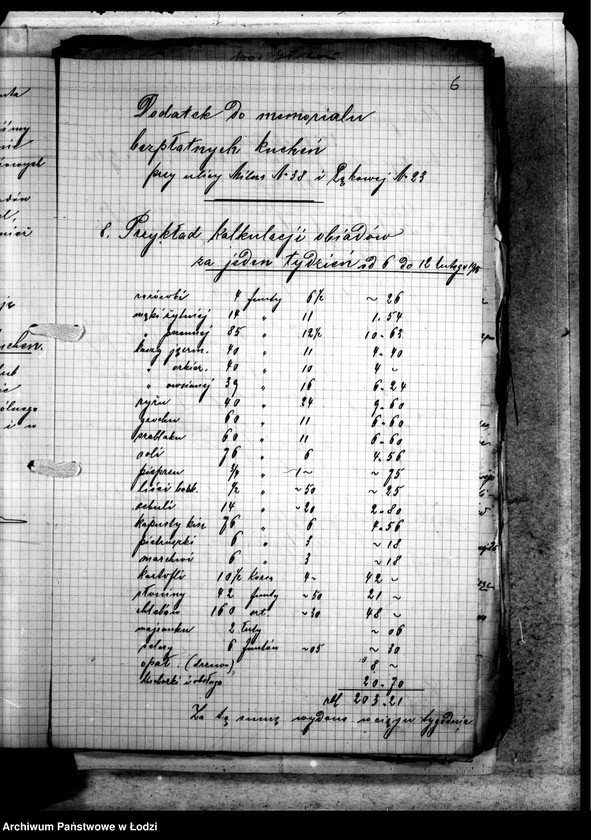 6
Dodatek do memoriału
bezpłatnych kucheń
przy ulicy Milsza № 38 i Łąkowej № 23
8. Przykład kalkulacji obiadów
za jeden tydzień od 6 do 12 lutego
4 funty 6½ ~ 26
mąki żytniej 14 " 11 1.54
" pszennej 85 " 12½ 10.63
kaszy jęczm. 40 " 11 4.40
" 40 " 10 4 ~
" owsianej 39 " 16 6.24
ryżu 40 " 24 9.60
grochu 60 " 11 6.60
60 " 11 6.60
soli 76 " 6 4.56
pieprzu " 1 ~ ~ 75
liści bobk. ½ " ~ 50 ~ 25
cebuli 14 " ~ 20 2.80
kapusty kisz. 76 " 6 4.56
pietruszki 6 " 3 ~ 18
marchwi 6 " 3 ~ 18
kartofli 10½ korca 4 ~ 42 ~
słoniny 42 funty ~ 50 21 ~
chlebów 160 ~ 30 48 ~
majranku 2 łuty ~ 06
6 funtów ~ 05 ~ 30
opał. (drzewo) 8 ~
kucharki i obsługa 20.70
rbl. 203.21
Za tę sumę wydano w ciągu tygodnia
kuchen.
Archiwum Państwowe w Łodzi